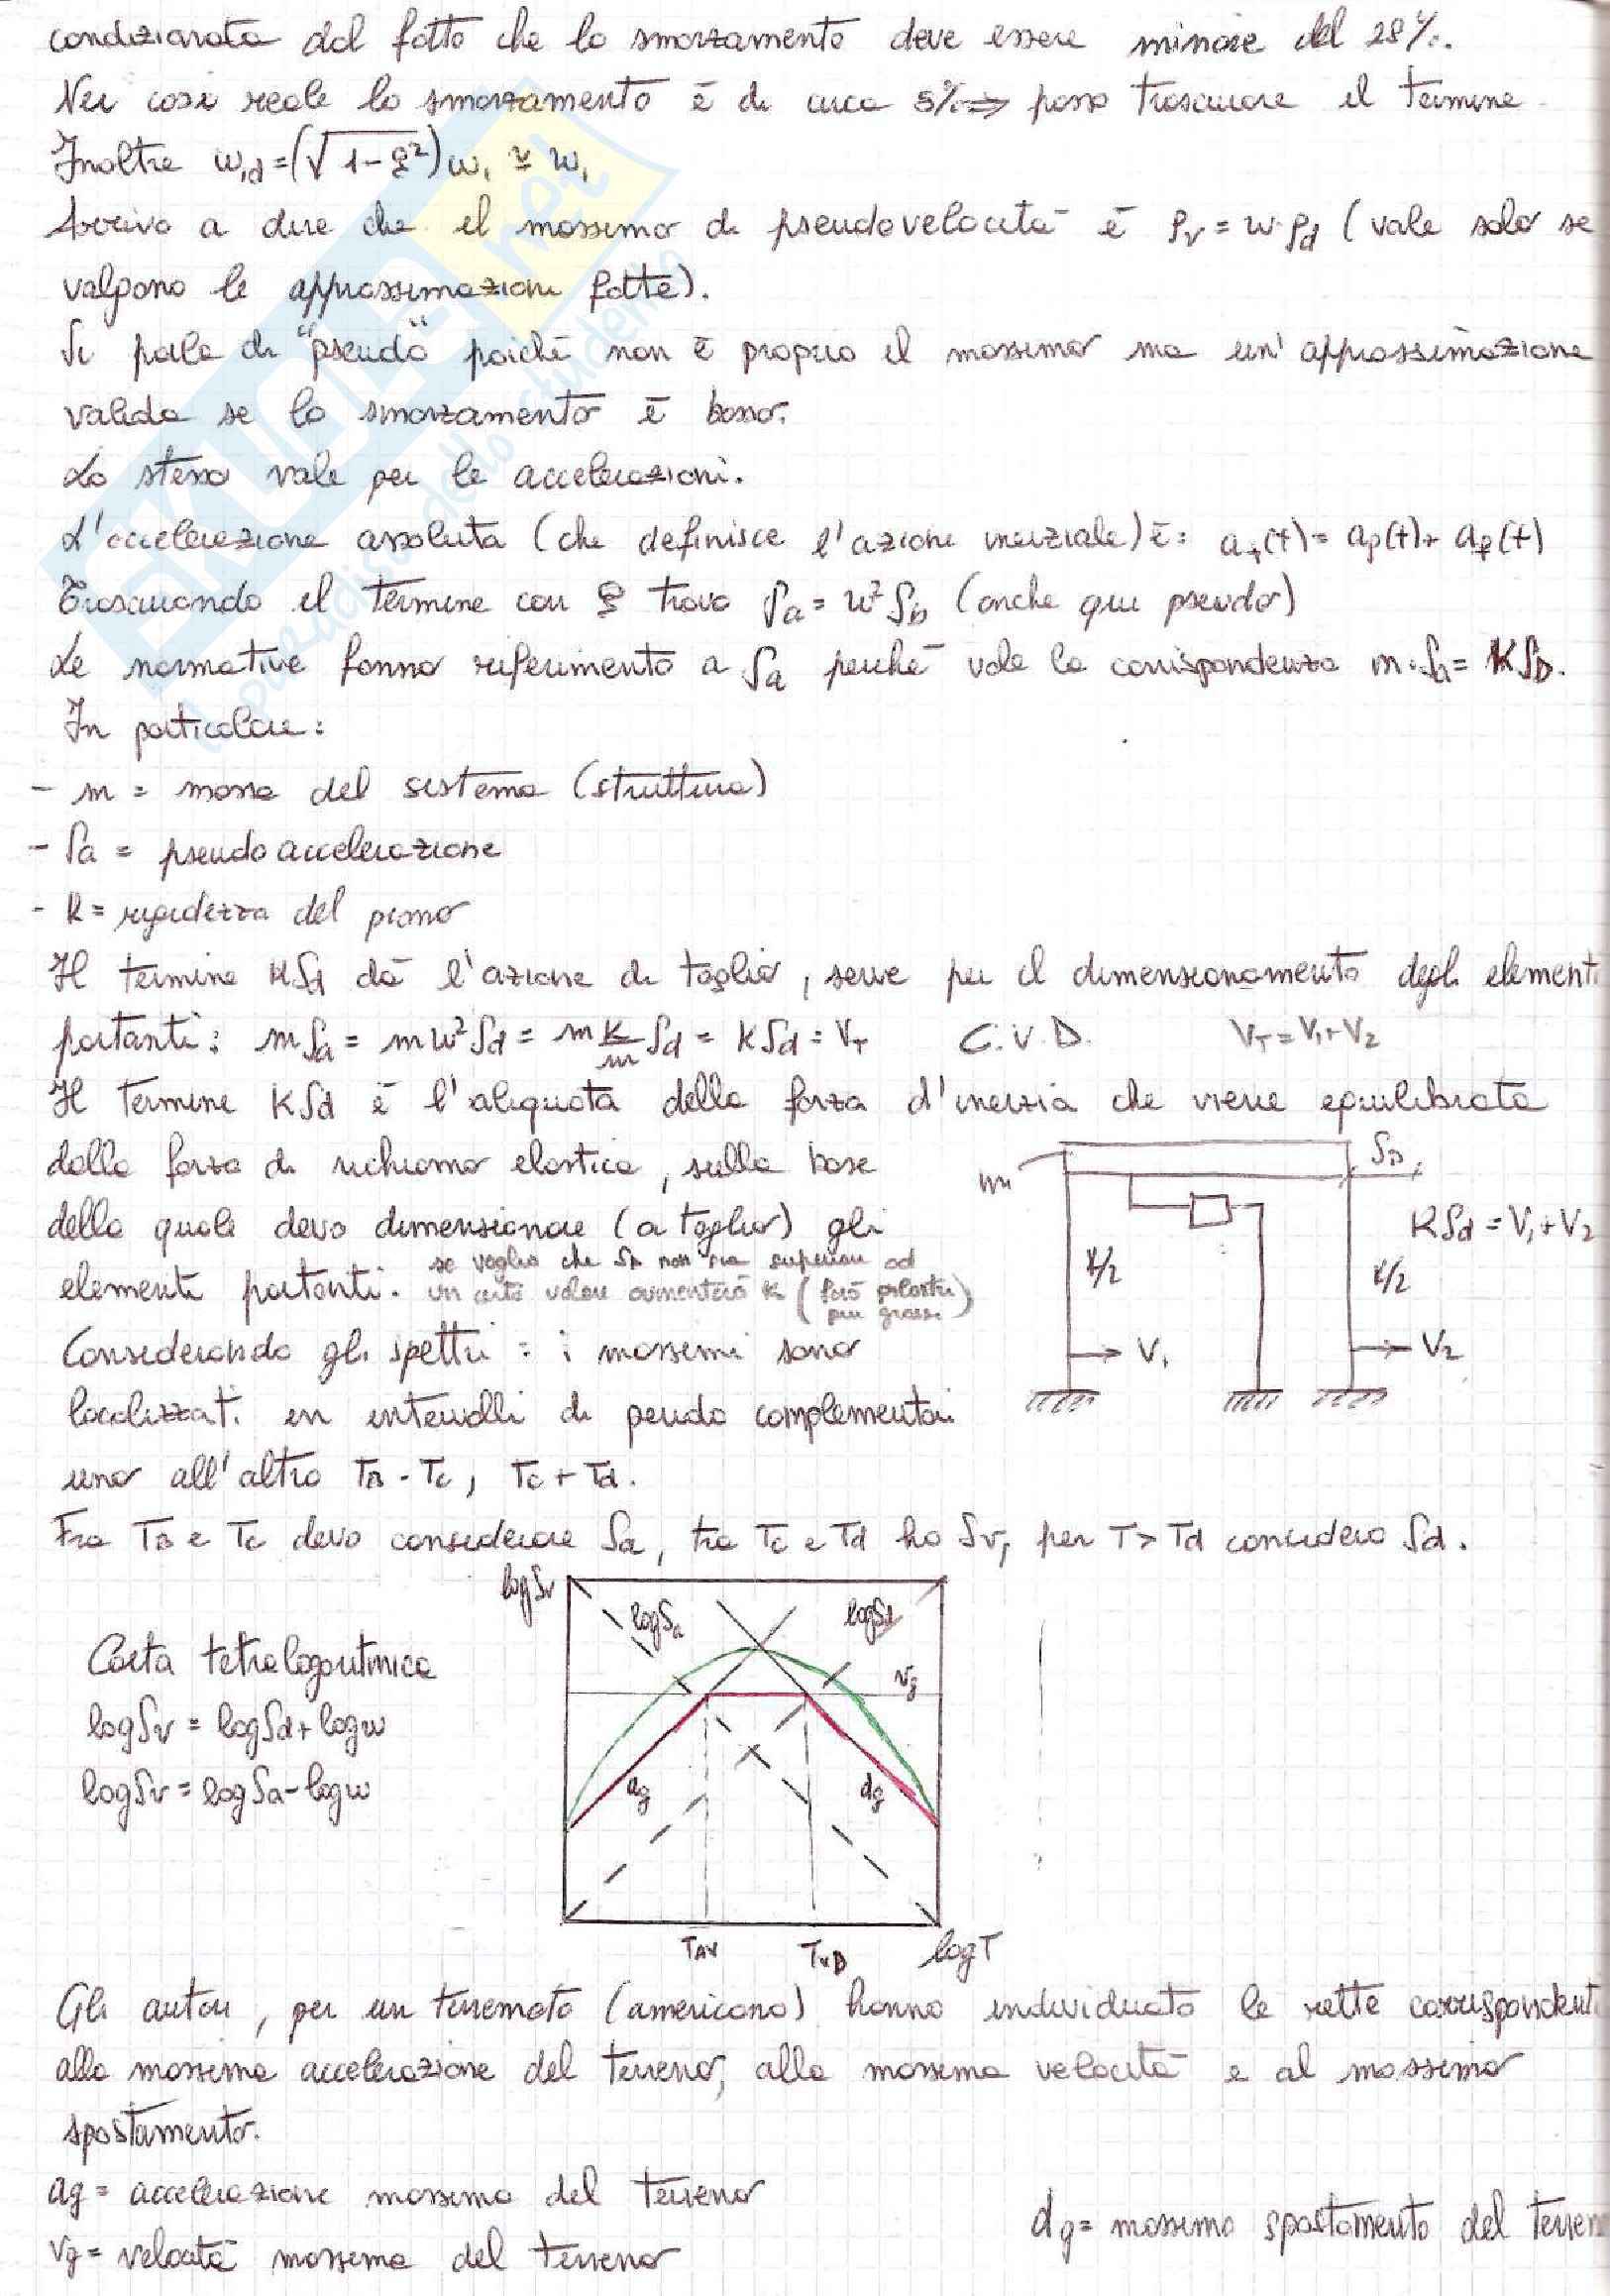 condizionata dal fatto che lo smorzamento deve essere minore del 28%.
Nei casi reale lo smorzamento è di circa 5% ⇒ posso trascurare il termine
Inoltre ω₁d = (√1-ξ²) ω₁ ≅ ω₁
Arrivo a dire che il massimo di pseudovelocità è Sv = ω·Sd (vale solo se
valgono le approssimazioni fatte).
Si parla di "pseudo" poiché non è proprio il massimo ma un'approssimazione
valida se lo smorzamento è basso.
Lo stesso vale per le accelerazioni.
L'accelerazione assoluta (che definisce l'azione inerziale) è:
Trascurando il termine con ξ trovo Sa = ω² SD (anche qui pseudo)
Le normative fanno riferimento a Sa perché vale la corrispondenza m·Sa = KSD.
In particolare:
- m = massa del sistema (struttura)
- Sa = pseudo accelerazione
- K = rigidezza del piano
Il termine KSd dà l'azione di taglio, serve per il dimensionamento degli elementi
portanti: mSa = mω²Sd = m K/m Sd = KSd = VT C.V.D. VT = V1 + V2
Il termine KSd è l'aliquota della forza d'inerzia che viene equilibrata
dalla forza di richiamo elastica, sulla base
della quale devo dimensionare (a taglio) gli
elementi portanti. se voglio che SD non sia superiore ad
un certo valore aumenterò K (farò pilastri
più grossi)
m
SD
KSd = V1 + V2
K/2
K/2
V1
V2
Considerando gli spettri: i massimi sono
localizzati in intervalli di periodo complementari
uno all'altro TB - TC, TC ÷ Td.
Fra TB e TC devo considerare Sa, tra Tc e Td ho Sv, per T > Td considero Sd.
log Sv
log Sa
log Sd
vg
ag
dg
TAV
TVD
log T
Carta tetralogaritmica
log Sv = log Sd + log ω
log Sv = log Sa - log ω
Gli autori, per un terremoto (americano) hanno individuato le rette corrispondenti
alla massima accelerazione del terreno, alla massima velocità e al massimo
spostamento.
ag = accelerazione massima del terreno
vg = velocità massima del terreno
dg = massimo spostamento del terren
SKUOLA.net
il paradiso dello studente